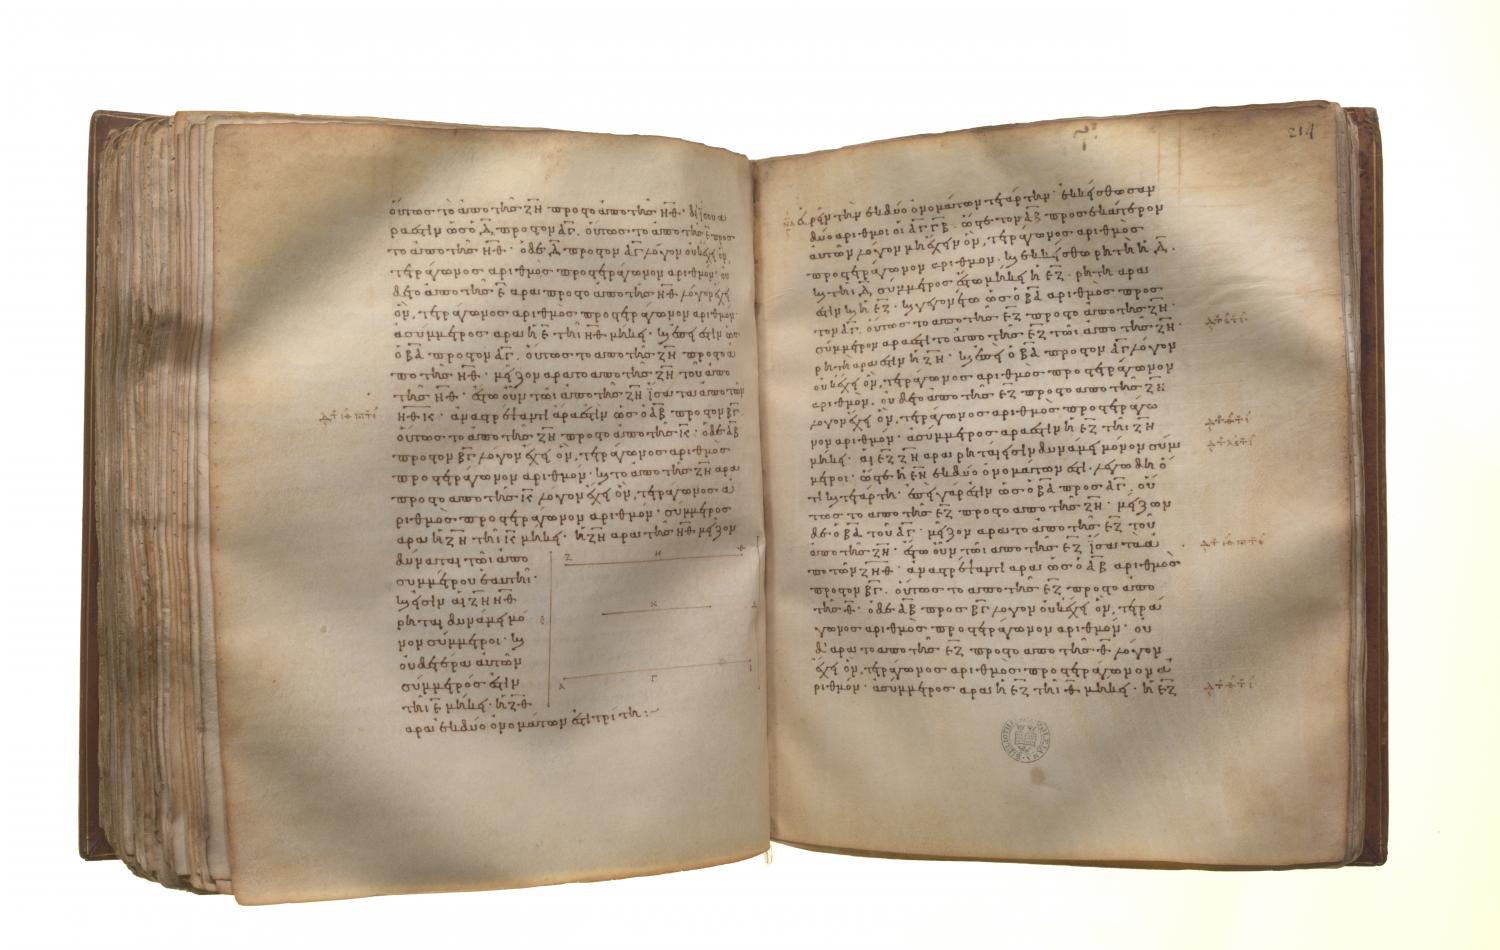 οὕτως τὸ ἀπὸ τῆς ΖΗ πρὸς τὸ ἀπὸ τῆς ΗΘ· δι ἴσου ἄ
ρα ἐστὶν ὡς ὁ Δ πρὸς τὸν ΑΓ, οὕτως τὸ ἀπὸ τῆς Ε πρὸς
τὸ ἀπὸ τῆς ΗΘ· ὁ δὲ Δ πρὸς τὸν ΑΓ λόγον οὐκ ἔχει ὃν
τετράγωνος ἀριθμὸς πρὸς τετράγωνον ἀριθμόν· οὐ
δὲ τὸ ἀπὸ τῆς Ε ἄρα πρὸς τὸ ἀπὸ τῆς ΗΘ λόγον ἔχει
ὃν τετράγωνος ἀριθμὸς πρὸς τετράγωνον ἀριθμόν·
ἀσύμμετρος ἄρα ἡ Ε τῆι ΗΘ μήκει· καὶ ἐπεί ἐστιν ὡς
ὁ ΒΑ πρὸς τὸν ΑΓ, οὕτως τὸ ἀπὸ τῆς ΖΗ πρὸς τὸ ἀ
πὸ τῆς ΗΘ· μεῖζον ἄρα τὸ ἀπὸ τῆς ΖΗ τοῦ ἀπὸ
τῆς ΗΘ· ἔστω οὖν τῶι ἀπὸ τῆς ΖΗ ἴσα τὰ ἀπὸ τῶν
ΗΘ ΙΚ· ἀναστρέψαντι ἄρα ἐστὶν ὡς ὁ ΑΒ πρὸς τὸν ΒΓ
οὕτως τὸ ἀπὸ τῆς ΖΗ πρὸς τὸ ἀπὸ τῆς ΙΚ· ὁ δὲ ΑΒ
πρὸς τὸν ΒΓ λόγον ἔχει ὃν τετράγωνος ἀριθμὸς
πρὸς τετράγωνον ἀριθμόν· καὶ τὸ ἀπὸ τῆς ΖΗ ἄρα
πρὸς τὸ ἀπὸ τῆς ΙΚ λόγον ἔχει ὃν τετράγωνος ἀ
ριθμὸς πρὸς τετράγωνον ἀριθμόν· σύμμετρος
ἄρα ἡ ΖΗ τῆι ΙΚ μήκει· ἡ ΖΗ ἄρα τῆς ΗΘ μεῖζον
δύναται τῶι ἀπὸ
συμμέτρου ἑαυτῆι·
καί εἰσιν αἱ ΖΗ ΗΘ
ῥηταὶ δυνάμει μό
νον σύμμετροι· καὶ
οὐδετέρα αὐτῶν
σύμμετρός ἐστιν
τῆι Ε μήκει· ἡ ΖΘ
ἄρα ἐκ δύο ὀνομάτων ἐστὶ τρίτη:~
Ζ Η Θ
Κ
Α Γ
214
εὑρεῖν τὴν ἐκ δύο ὀνομάτων τετάρτην· ἐκκείσθωσαν
δύο ἀριθμοὶ οἱ ΑΓ ΓΒ· ὥστε τὸν ΑΒ πρὸς ἑκάτερον
αὐτῶν λόγον μὴ ἔχειν ὃν τετράγωνος ἀριθμὸς
πρὸς τετράγωνον ἀριθμόν· καὶ ἐκκείσθω ῥητὴ ἡ Δ·
καὶ τῆι Δ σύμμετρος ἔστω μήκει ἡ ΕΖ· ῥητὴ ἄρα
ἐστὶν καὶ ἡ ΕΖ· καὶ γεγονέτω ὡς ὁ ΒΑ ἀριθμὸς πρὸς
τὸν ΑΓ, οὕτως τὸ ἀπὸ τῆς ΕΖ πρὸς τὸ ἀπὸ τῆς ΖΗ·
σύμμετρον ἄρα ἐστὶ τὸ ἀπὸ τῆς ΕΖ τῶι ἀπὸ τῆς ΖΗ·
ῥητὴ ἄρα ἐστὶν ἡ ΖΗ· καὶ ἐπεὶ ὁ ΒΑ πρὸς τὸν ΑΓ λόγον
οὐκ ἔχει ὃν τετράγωνος ἀριθμὸς πρὸς τετράγωνον
ἀριθμόν, οὐδὲ τὸ ἀπὸ τῆς ΕΖ πρὸς τὸ ἀπὸ τῆς ΖΗ
λόγον ἔχει ὃν τετράγωνος ἀριθμὸς πρὸς τετράγω
νον ἀριθμόν· ἀσύμμετρος ἄρα ἐστὶν ἡ ΕΖ τῆι ΖΗ
μήκει· αἱ ΕΖ ΖΗ ἄρα ῥηταί εἰσιν δυνάμει μόνον σύμ
μετροι· ὥστε ἡ ΕΗ ἐκ δύο ὀνομάτων ἐστί· λέγω δὴ ὅ
τι καὶ τετάρτη· ἐπεὶ γάρ ἐστιν ὡς ὁ ΒΑ πρὸς ΑΓ, οὕ
τως τὸ ἀπὸ τῆς ΕΖ πρὸς τὸ ἀπὸ τῆς ΖΗ· μείζων
δὲ ὁ ΒΑ τοῦ ΑΓ· μεῖζον ἄρα τὸ ἀπὸ τῆς ΕΖ τοῦ
ἀπὸ τῆς ΖΗ· ἔστω οὖν τῶι ἀπὸ τῆς ΕΖ ἴσα τὰ ἀ
πὸ τῶν ΖΗ Θ· ἀναστρέψαντι ἄρα ὡς ὁ ΑΒ ἀριθμὸς
πρὸς τὸν ΒΓ, οὕτως τὸ ἀπὸ τῆς ΕΖ πρὸς τὸ ἀπὸ
τῆς Θ· ὁ δὲ ΑΒ πρὸς ΒΓ λόγον οὐκ ἔχει ὃν τετρά
γωνος ἀριθμὸς πρὸς τετράγωνον ἀριθμόν· οὐ
δ' ἄρα τὸ ἀπὸ τῆς ΕΖ πρὸς τὸ ἀπὸ τῆς Θ λόγον
ἔχει ὃν τετράγωνος ἀριθμὸς πρὸς τετράγωνον ἀ
ριθμόν· ἀσύμμετρος ἄρα ἡ ΕΖ τῆι Θ μήκει· ἡ ΕΖ